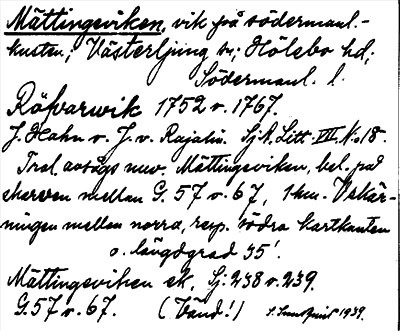 Mättingeviken, vik på södermanl.-
kusten; Västerljung sn; Hölebo hd;
Södermanl. l.
Röfvarwik 1752 o. 1767.
J. Hahn o. J. v. Rajalin. Sj. K. Litt. VII, No 18.
Trol. avsågs nuv. Mättingeviken, bel. på
skarven mellan G. 57 o. 67, 1 km. V skär-
ningen mellan norra, resp. södra kartkanten
o. längdgrad 35'.
Mättingeviken ek, Sj. 238 o. 239.
G. 57 o. 67. (Vänd!) 1939.